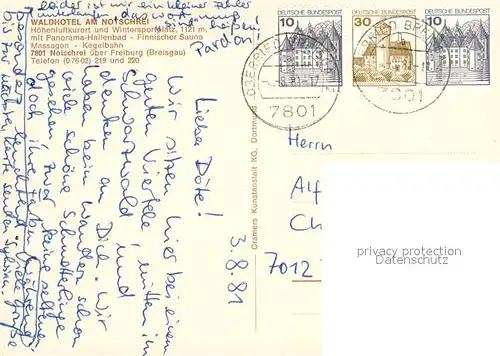 leider ist mir ein kleiner Fehler
unterlaufen, das
heißen,
Pardon!
WALDHOTEL AM NOTSCHREI
Höhenluftkurort und Wintersportplatz, 1121 m,
mit Panorama-Hallenbad - Finnischer Sauna
Massagen - Kegelbahn
7801 Notschrei über Freiburg (Breisgau)
Telefon (0 76 02) 219 und 220
Liebe Döte!
Wir sitzen hier bei einem
guten Viertele mitten im
Schwarzwald und
denken an Dich. Wir
haben beim wandern schon
viele schöne Schmetterlinge
gesehen, zwar keine seltenen
doch ihre Farben
besonders leuchtend. Viele Grüße
bis zur nächsten Karte senden
3. 8. 81
Cramers Kunstanstalt KG, Dortmund
DEUTSCHE BUNDESPOST
10
DEUTSCHE BUNDESPOST
30
DEUTSCHE BUNDESPOST
10
OBERRIED
7801
7801
Herrn
Alf
Ch
7012
privacy protection
Datenschutz